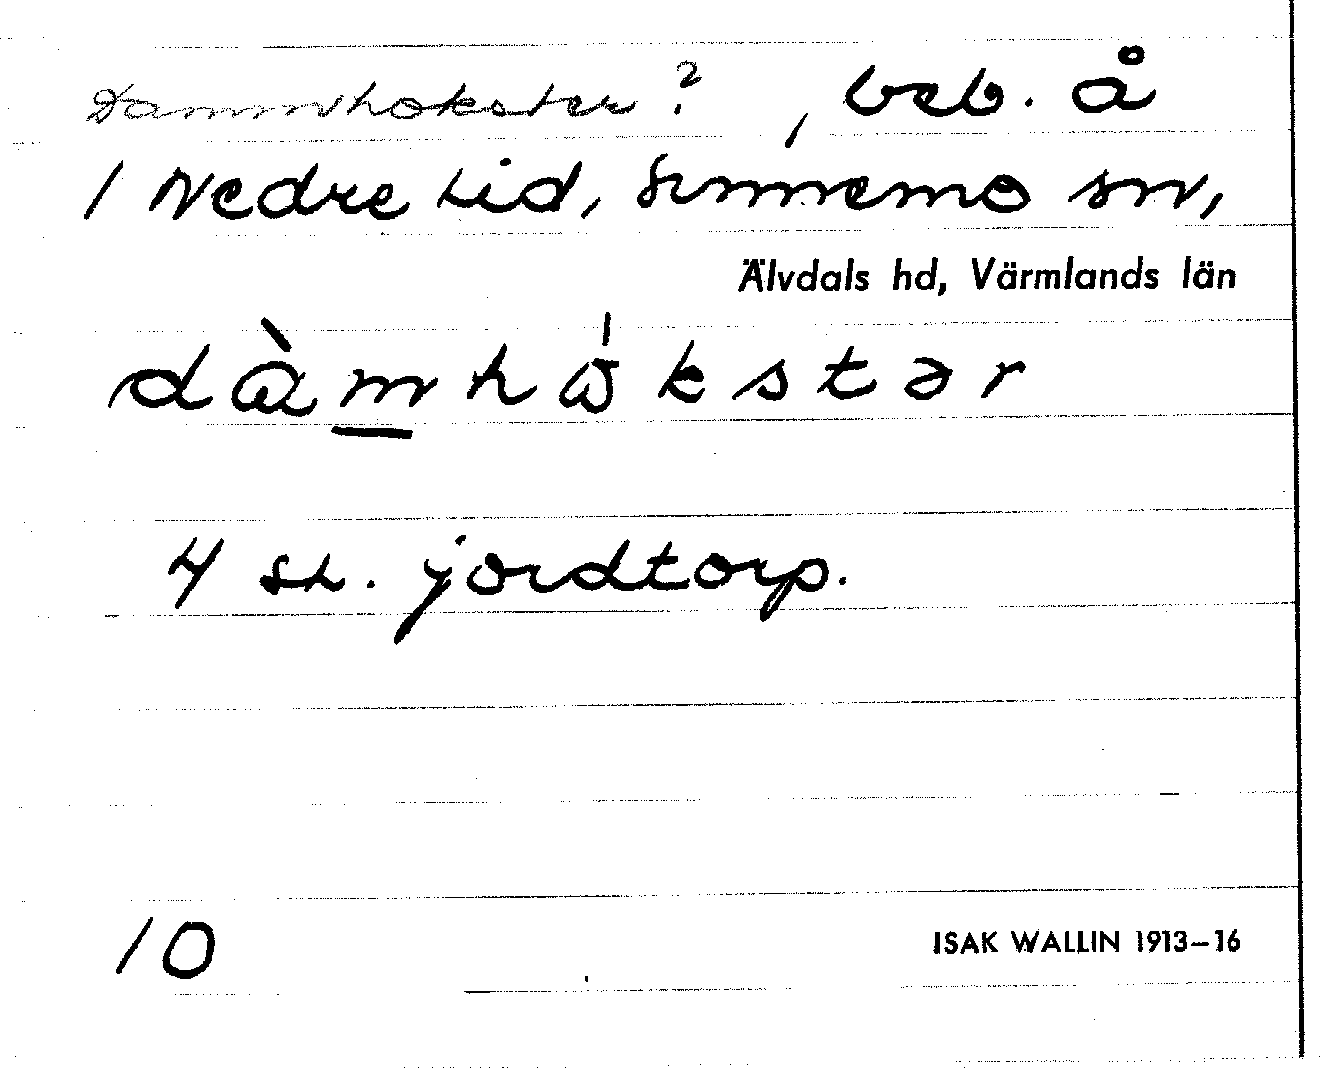 Dammhokster? , beb. å
1 Nedre Lid, Sunnemo sn,
Älvdals hd, Värmlands län
4 st. jordtorp.
10
ISAK WALLIN 1913–16